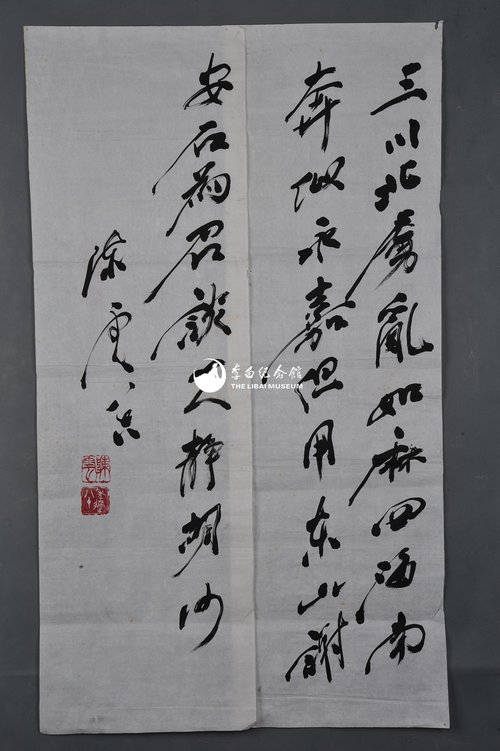 三川北虜亂如麻四海南
奔似永嘉但用东山謝
安石为君談笑静胡沙
陈雲
李白纪念館
THE LIBAI MUSEUM